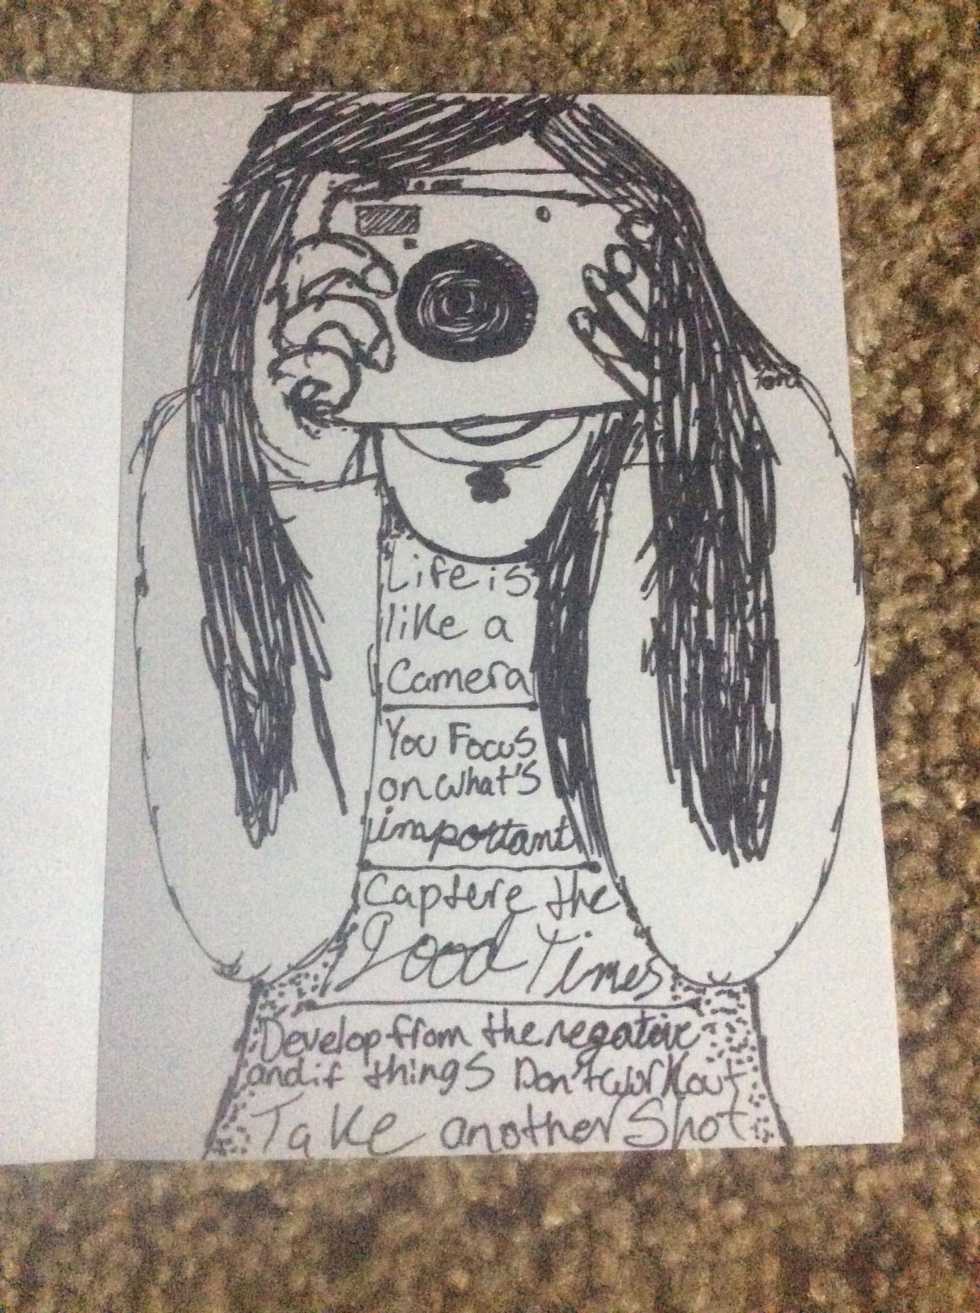 Life is
like a
Camera
You Focus
on what's
important
Capture the
good Times
Develop from the negative
and if things Don't work out
Take another Shot